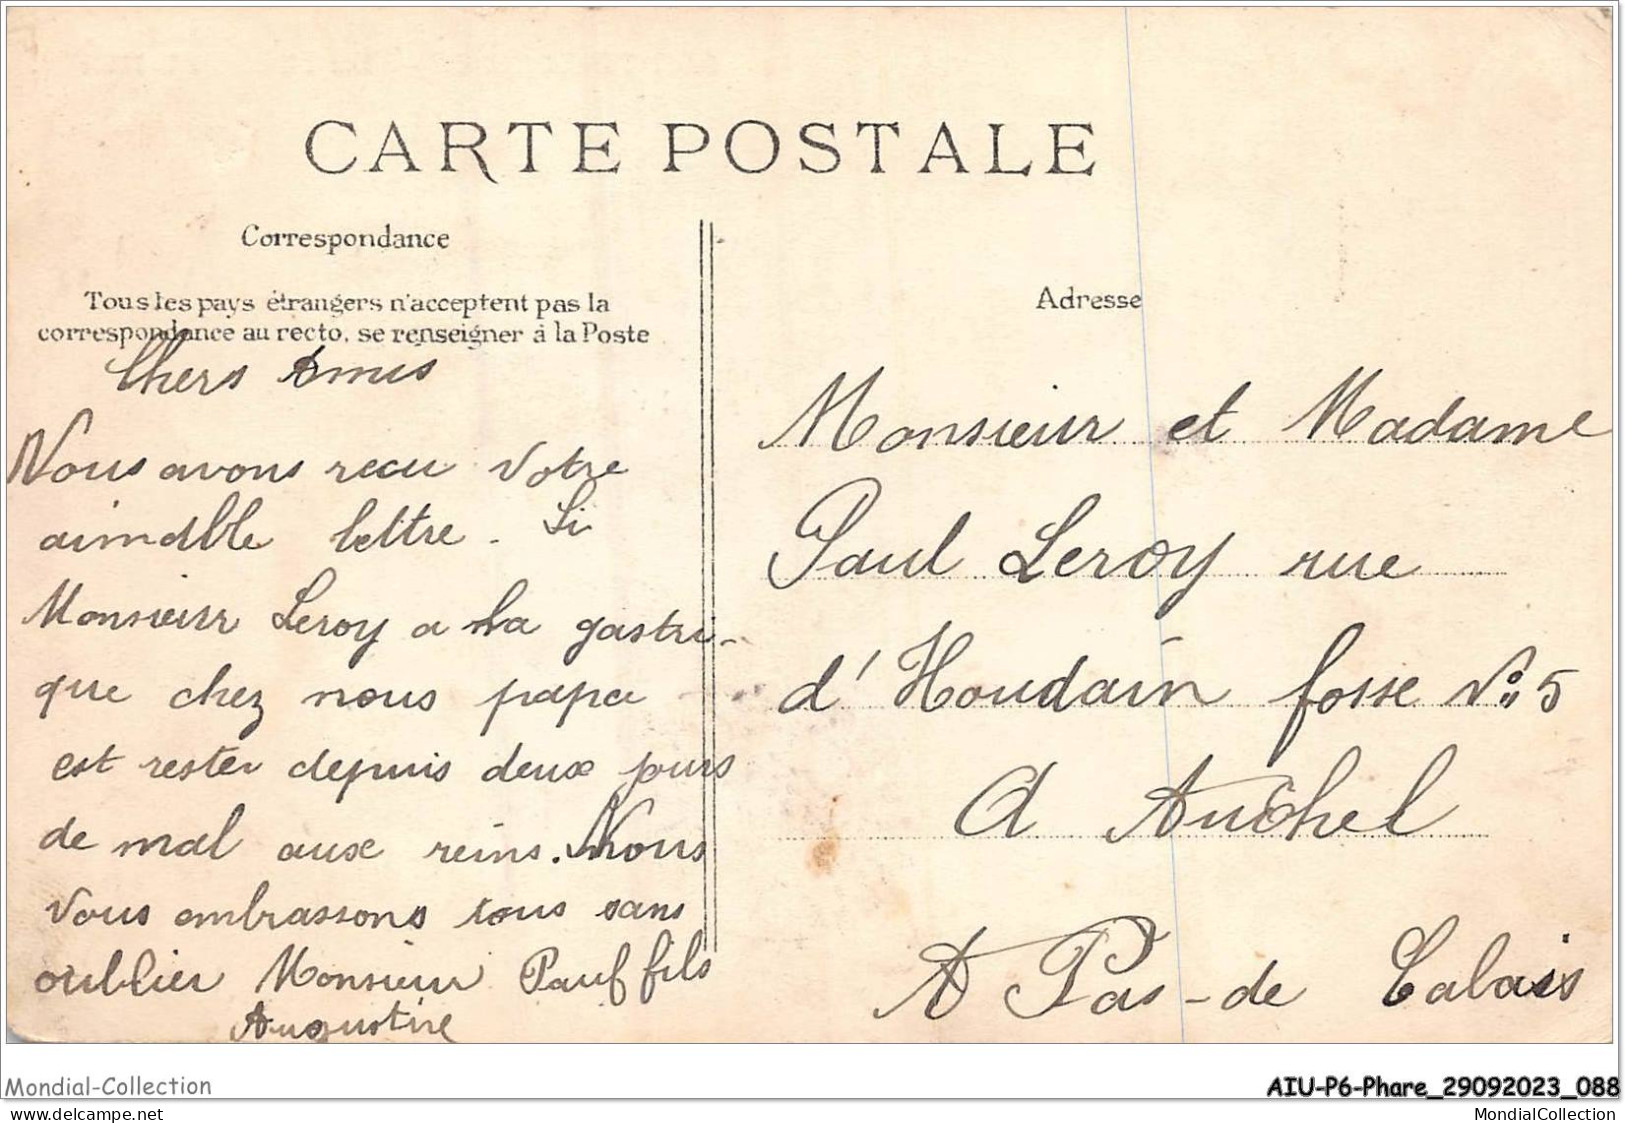 CARTE POSTALE
Correspondance
Tous les pays étrangers n'acceptent pas la
correspondance au recto, se renseigner à la Poste
Chers Amis
Nous avons recu votre
aimable lettre. Si
Monsieur Leroy a la gastri-
que chez nous papa
est rester depuis deux jours
de mal aux reins. Nous
vous embrassons tous sans
oublier Monsieur Paul fils
Augustine
Adresse
Monsieur et Madame
Paul Leroy rue
d'Houdain fosse No 5
A Auchel
A Pas-de Calais
Mondial-Collection
AIU-P6-Phare_29092023_088
www.delcampe.net
MondialCollection